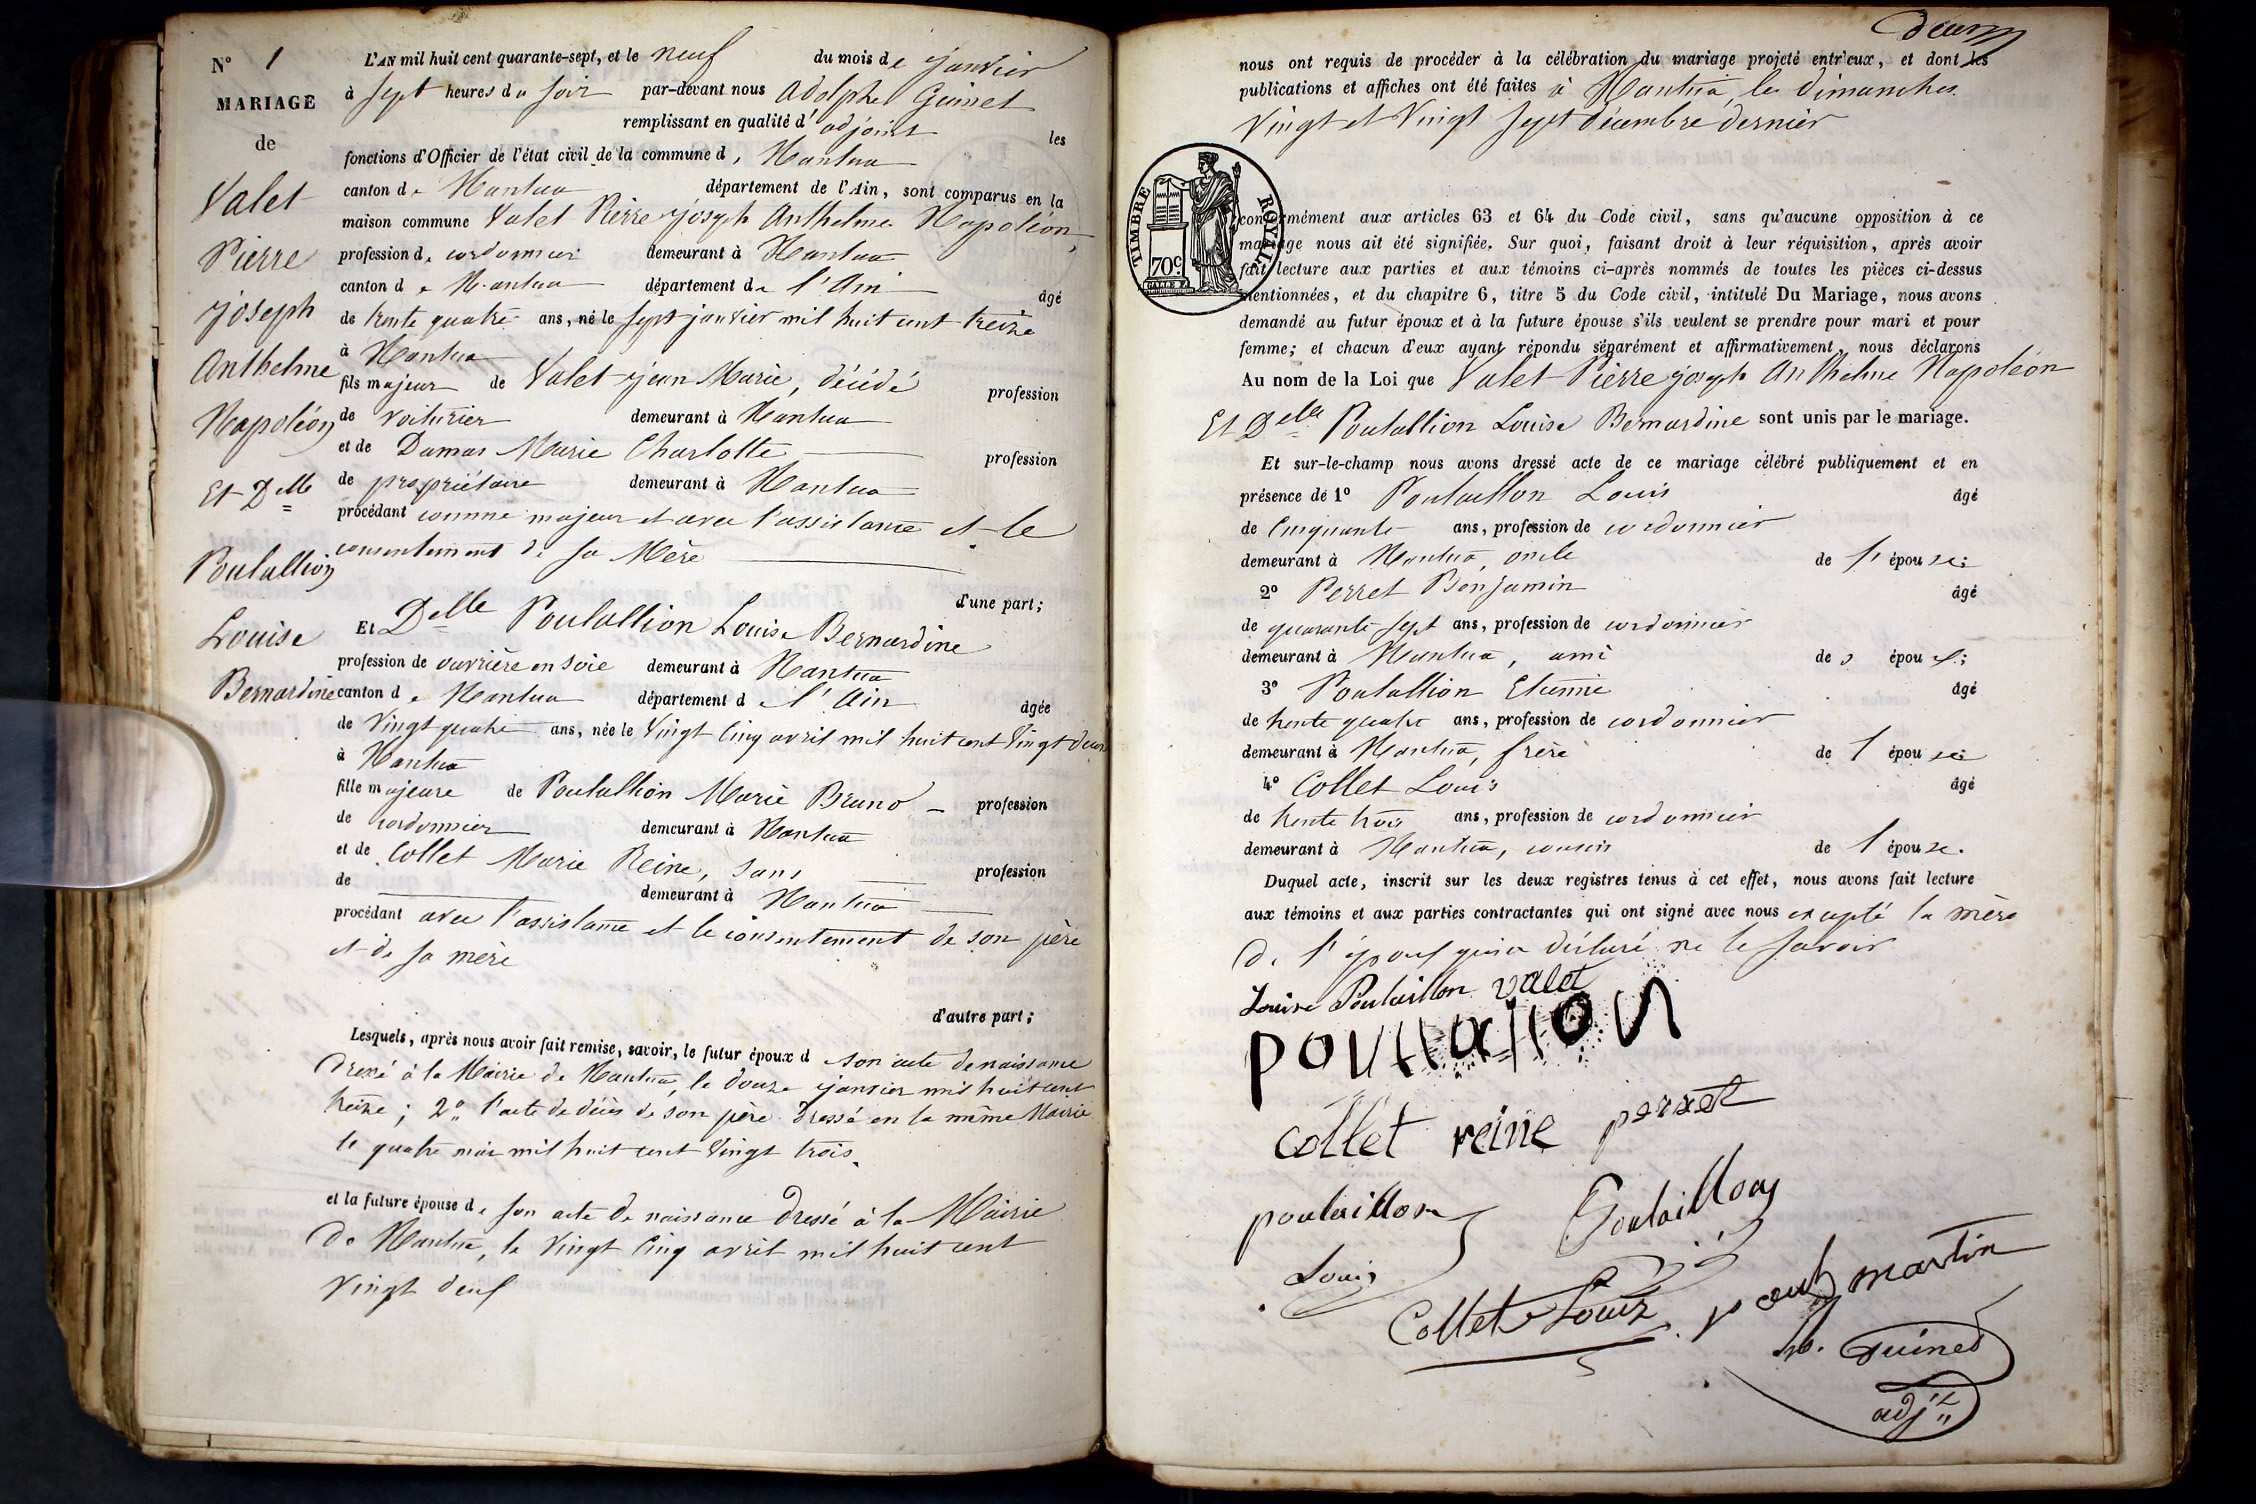 N° 1
MARIAGE
de
Valet
Pierre
joseph
Anthelme
Napoléon
Et Delle
Poulallion
Louise
Bernardine
L'AN mil huit cent quarante-sept, et le neuf du mois de janvier
à sept heures du soir par-devant nous Adolphe Guinet
remplissant en qualité d'adjoint les
fonctions d'Officier de l'état civil de la commune de Nantua
canton de Nantua département de l'Ain, sont comparus en la
maison commune Valet Pierre joseph Anthelme Napoléon,
profession de cordonnier demeurant à Nantua
canton de Nantua département de l'Ain âgé
de trente quatre ans, né le sept janvier mil huit cent treize
à Nantua
fils majeur de Valet jean Marie, décédé profession
de voiturier demeurant à Nantua
et de Dumas Marie Charlotte profession
de propriétaire demeurant à Nantua
procédant comme majeur et avec l'assistance et le
consentement de sa Mère
d'une part;
Et Delle Poulallion Louise Bernardine
profession de ouvrière en soie demeurant à Nantua
canton de Nantua département de l'Ain âgée
de vingt quatre ans, née le vingt cinq avril mil huit cent vingt deux
à Nantua
fille majeure de Poulallion Marie Bruno profession
de cordonnier demeurant à Nantua
et de Collet Marie Reine, sans profession
de demeurant à Nantua
procédant avec l'assistance et le consentement de son père
et de sa mère
d'autre part;
Lesquels, après nous avoir fait remise, savoir, le futur époux d son acte de naissance
dressé à la Mairie de Nantua, le douze janvier mil huit cent
treize; 2° l'acte de décès de son père dressé en la même Mairie
le quatre mai mil huit cent vingt trois.
et la future épouse de son acte de naissance dressé à la Mairie
de Nantua, le vingt cinq avril mil huit cent
vingt deux
nous ont requis de procéder à la célébration du mariage projeté entr'eux, et dont les
publications et affiches ont été faites à Nantua, les dimanches
vingt et vingt sept décembre dernier
TIMBRE ROYAL
70c
conformément aux articles 63 et 64 du Code civil, sans qu'aucune opposition à ce
mariage nous ait été signifiée. Sur quoi, faisant droit à leur réquisition, après avoir
fait lecture aux parties et aux témoins ci-après nommés de toutes les pièces ci-dessus
mentionnées, et du chapitre 6, titre 5 du Code civil, intitulé Du Mariage, nous avons
demandé au futur époux et à la future épouse s'ils veulent se prendre pour mari et pour
femme; et chacun d'eux ayant répondu séparément et affirmativement, nous déclarons
Au nom de la Loi que Valet Pierre joseph Anthelme Napoléon
Et Delle Poulallion Louise Bernardine sont unis par le mariage.
Et sur-le-champ nous avons dressé acte de ce mariage célébré publiquement et en
présence de 1° Poulallion Louis âgé
de Cinquante ans, profession de cordonnier
demeurant à Nantua, oncle de l'épouse;
2° Perret Benjamin âgé
de quarante sept ans, profession de cordonnier
demeurant à Nantua, ami de
3° Poulallion Etienne âgé
de trente quatre ans, profession de cordonnier
demeurant à Nantua, frère de l épouse;
4° Collet Louis âgé
de trente trois ans, profession de cordonnier
demeurant à Nantua, cousin de l épouse.
Duquel acte, inscrit sur les deux registres tenus à cet effet, nous avons fait lecture
aux témoins et aux parties contractantes qui ont signé avec nous excepté la mère
de l'époux qui a déclaré ne le savoir
Louise Poulaillon valet
poullallion
Collet reine perret
poulaillon Poulaillon
Louis
Collet Louis martin
Guinet
adjt